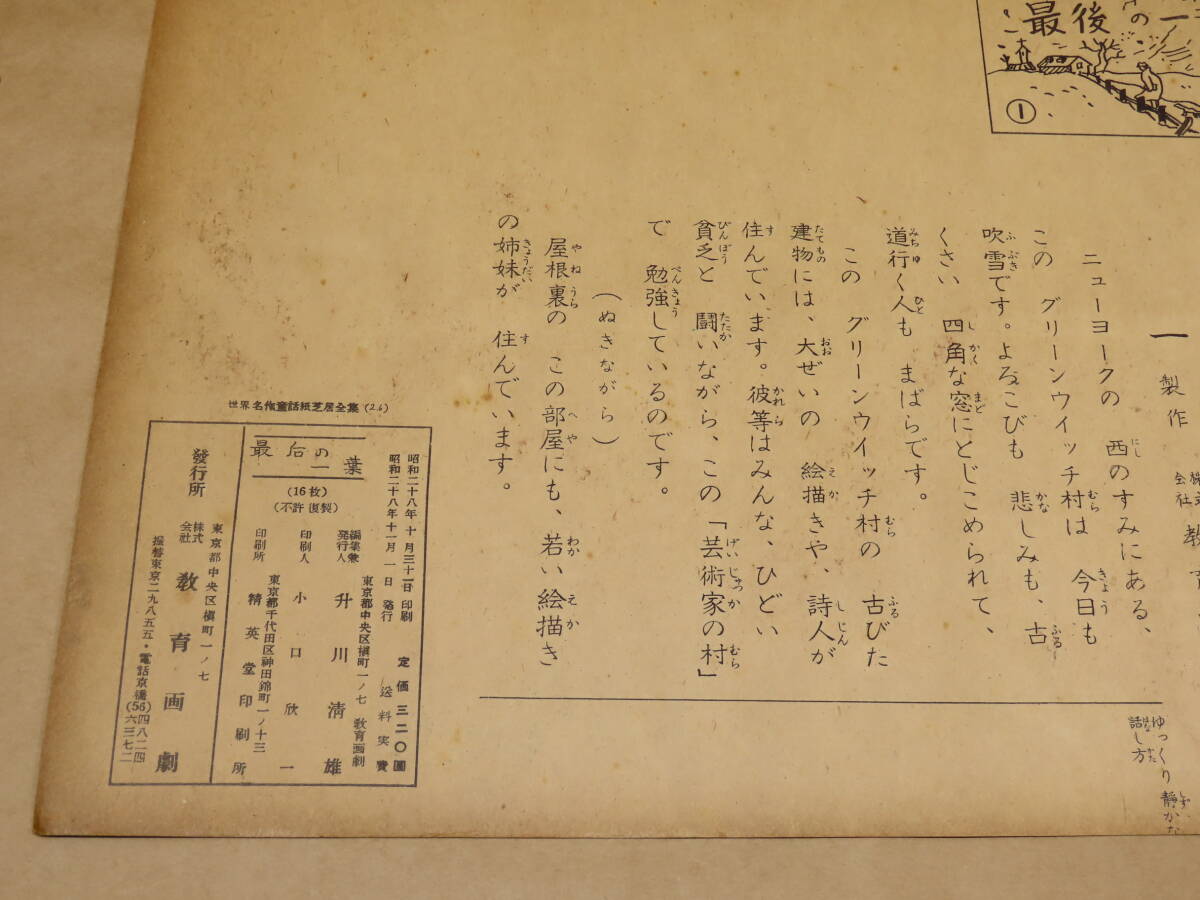 最後の一
①
一
製作
株式
会社
教育
ニューヨークの 西のすみにある、
この グリーンウイッチ村は 今日も
吹雪です。よろこびも 悲しみも、古
くさい 四角な窓にとじこめられて、
道行く人も まばらです。
この グリーンウイッチ村の 古びた
建物には、大ぜいの 絵描きや、詩人が
住んでいます。彼等はみんな、ひどい
貧乏と 闘いながら、この「芸術家の村」
で 勉強しているのです。
(ぬきながら)
屋根裏の この部屋にも、若い絵描き
の姉妹が 住んでいます。
ゆっくり 静かな
話し方
世界名作童話紙芝居全集(26)
昭和二十八年 十月三十一日 印刷
昭和二十八年十一月 一日 発行
定価三二〇圓
送料実費
最后の一葉
(16枚)
(不許復製)
編集兼
発行人
東京都中央区槇町一ノ七 教育画劇
升川清雄
印刷人
小口欣一
東京都千代田区神田錦町一ノ十三
印刷所
精英堂印刷所
發行所
東京都中央区槇町一ノ七
株式
会社
教育画劇
振替東京二九八五五・電話京橋(56)四八二四
六三七二